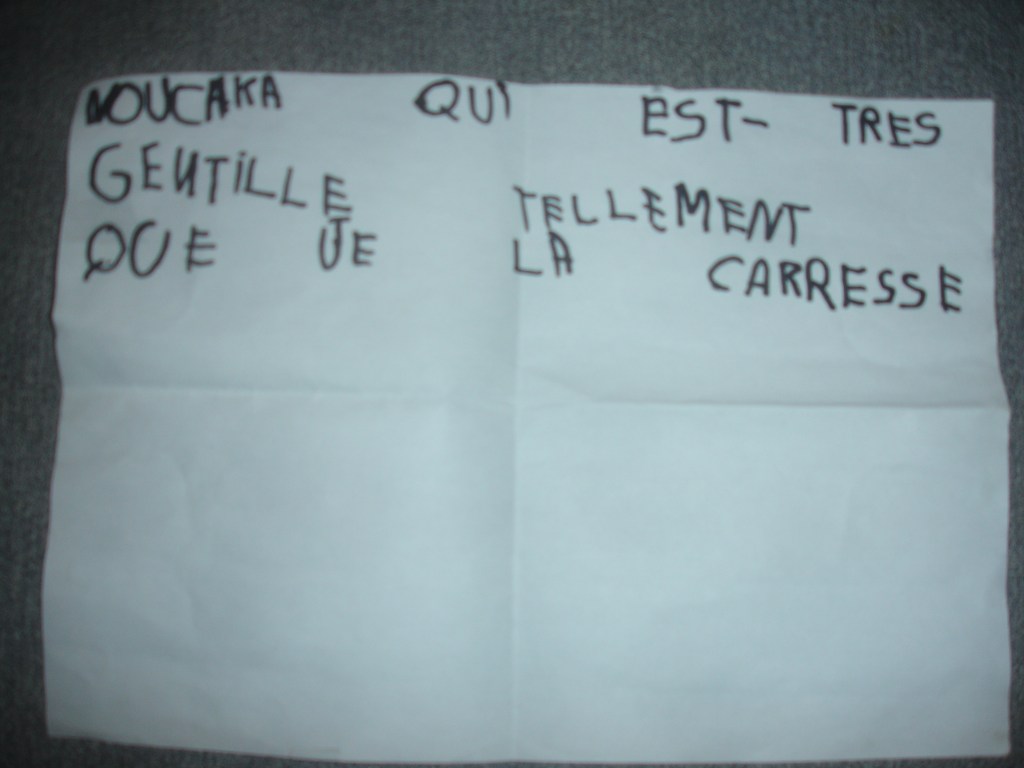 NOUCAKA QUI EST- TRES
GENTILLE TELLEMENT
QUE JE LA CARRESSE